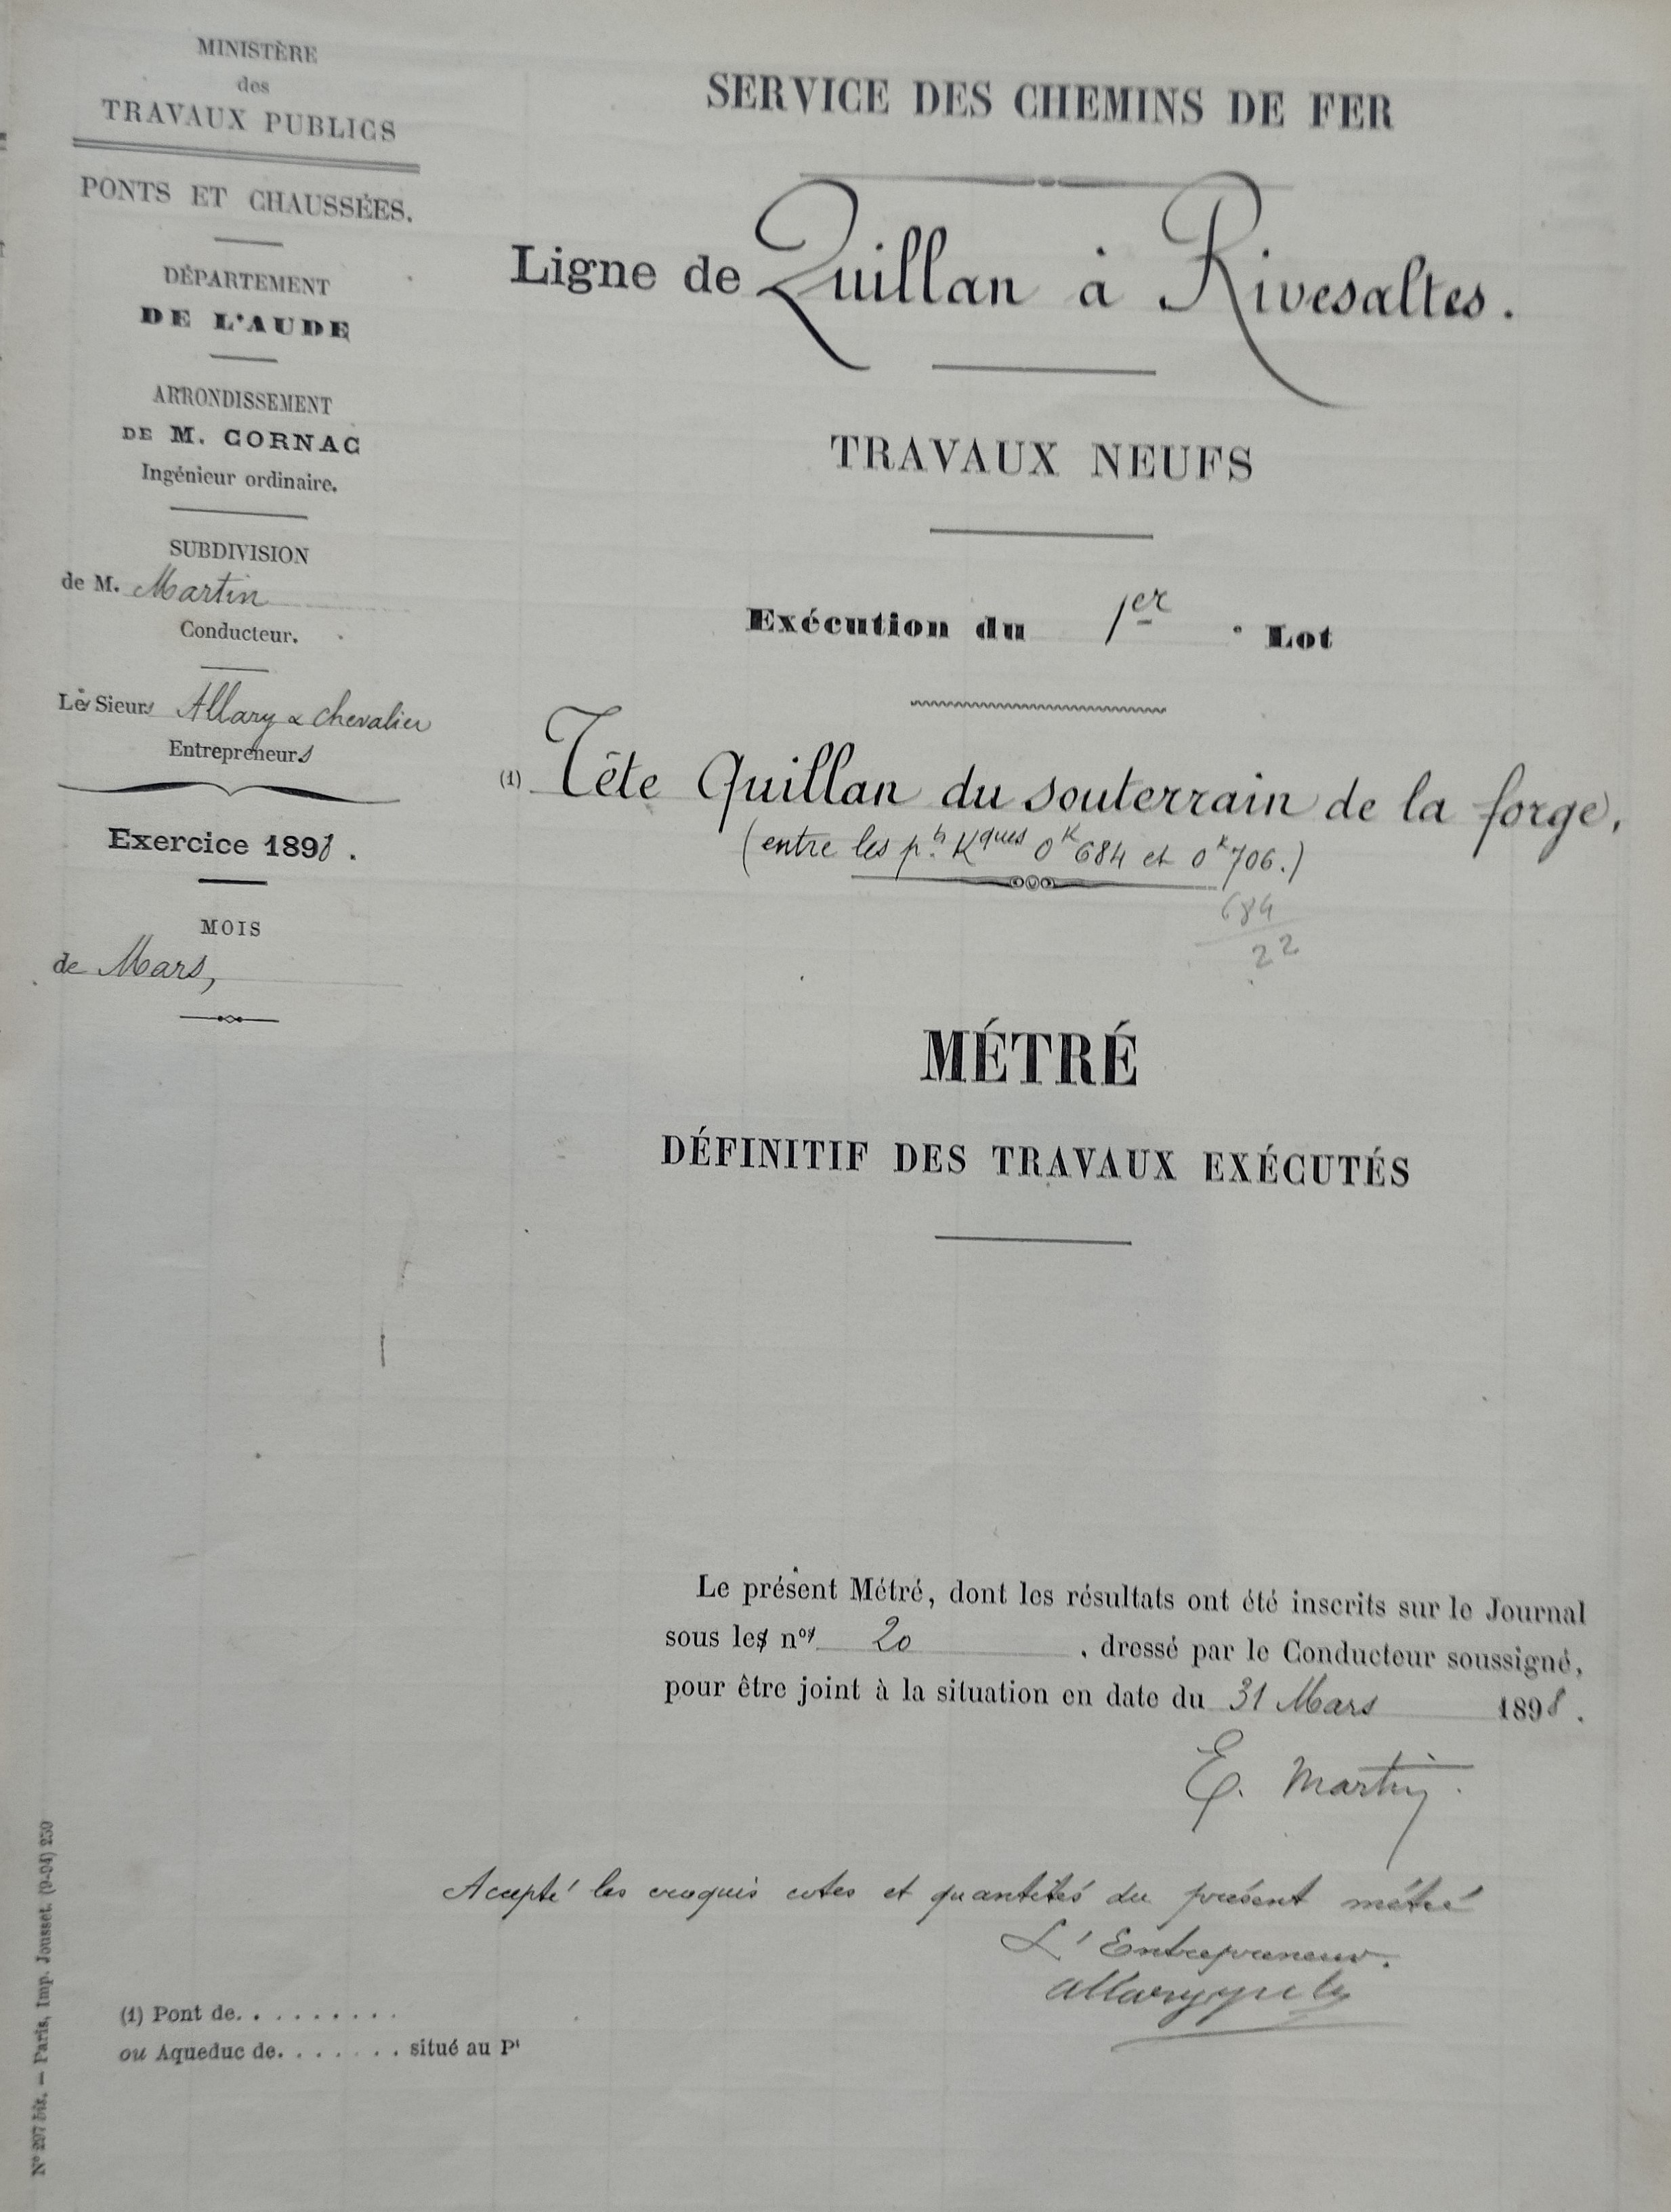 MINISTÈRE
des
TRAVAUX PUBLICS
PONTS ET CHAUSSÉES.
DÉPARTEMENT
DE L'AUDE
ARRONDISSEMENT
DE M. CORNAC
Ingénieur ordinaire.
SUBDIVISION
de M. Martin
Conducteur.
Les Sieurs Allary & Chevalier
Entrepreneurs
Exercice 1898.
MOIS
de Mars,
SERVICE DES CHEMINS DE FER
Ligne de Quillan à Rivesaltes.
TRAVAUX NEUFS
Exécution du 1er Lot
(1) Tête Quillan du souterrain de la forge,
(entre les p.ts Kques 0K684 et 0K706.)
684
22
MÉTRÉ
DÉFINITIF DES TRAVAUX EXÉCUTÉS
Le présent Métré, dont les résultats ont été inscrits sur le Journal
sous les nos 20 , dressé par le Conducteur soussigné,
pour être joint à la situation en date du 31 Mars 1898.
E. Martin.
Accepté les croquis cotes et quantités du présent métré
L'Entrepreneur.
Allary
(1) Pont de. . . . . . . . .
ou Aqueduc de. . . . . . . situé au Pt
N° 297 bis. — Paris, Imp. Jousset. (9-94) 250